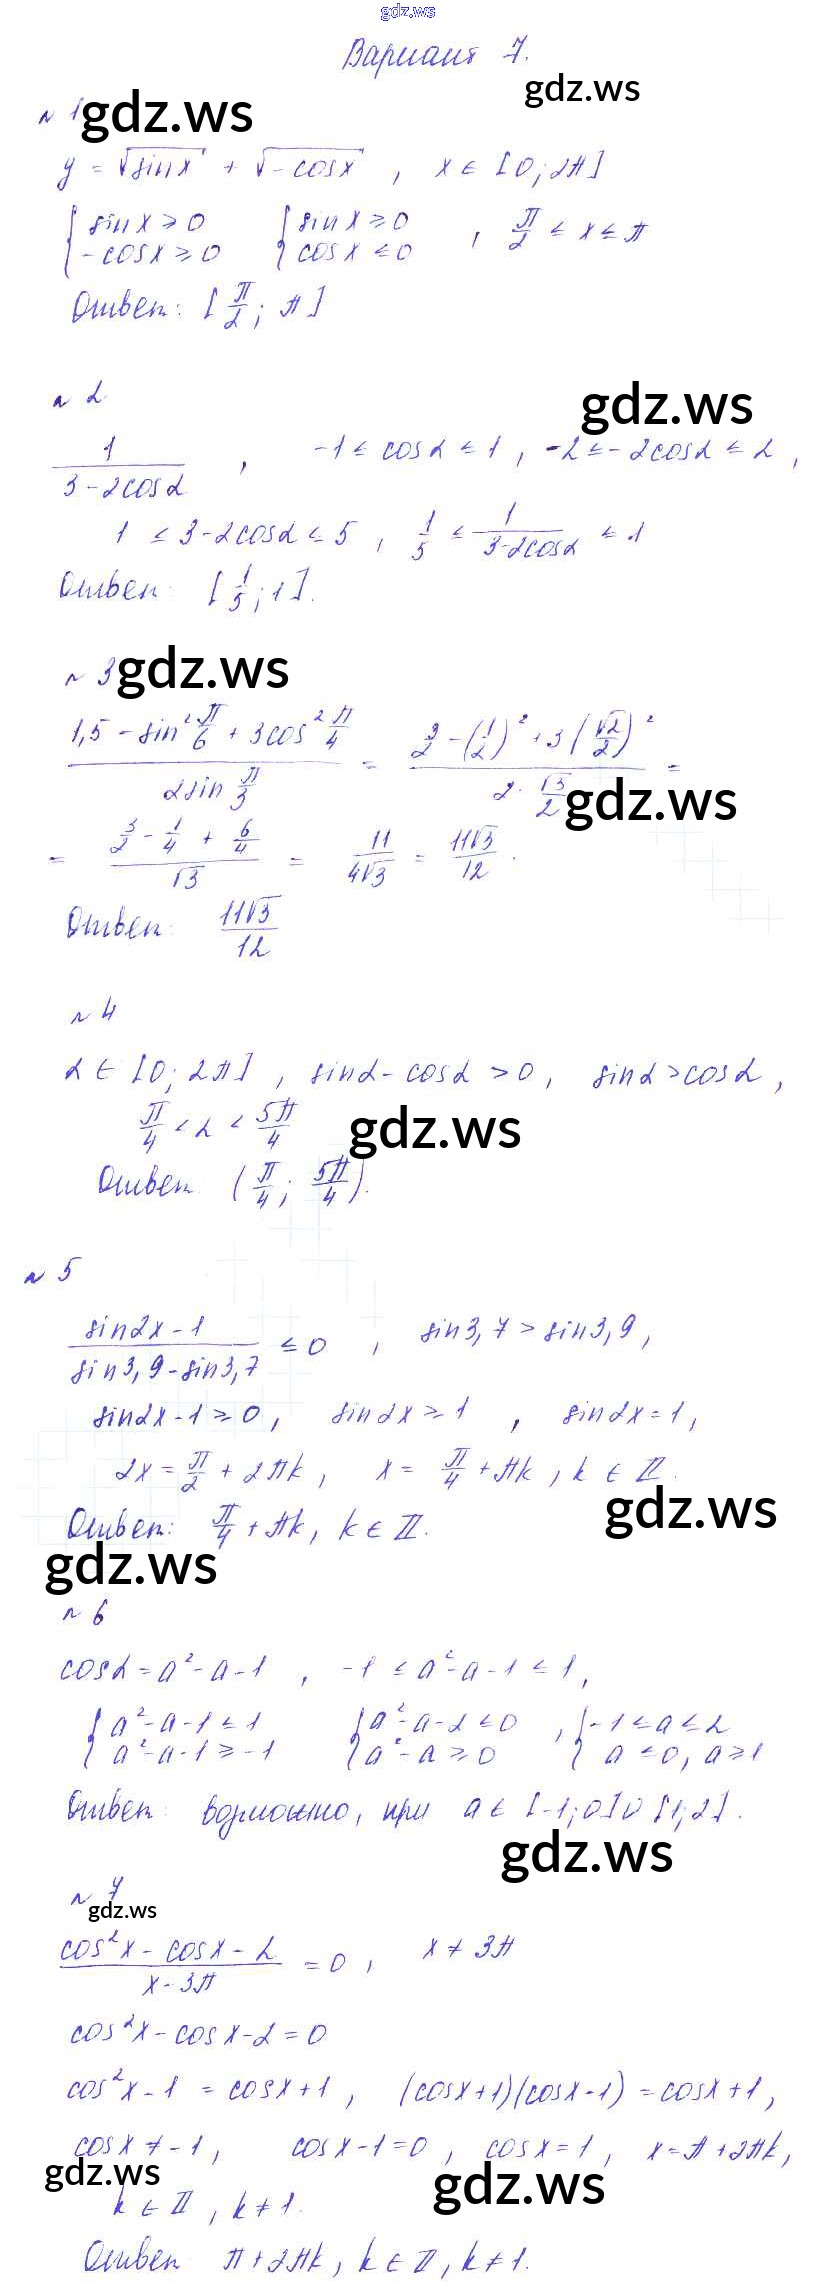 gdz.ws
Вариант 7.
gdz.ws
№ 1 gdz.ws
y = √sinx + √-cosx , x ∈ [0; 2π]
{ sinx ≥ 0 { sinx ≥ 0 , π/2 ≤ x ≤ π
{ -cosx ≥ 0 { cosx ≤ 0
Ответ: [π/2; π]
№ 2 gdz.ws
1/(3-2cosα) , -1 ≤ cosα ≤ 1 , -2 ≤ -2cosα ≤ 2 ,
1 ≤ 3-2cosα ≤ 5 , 1/5 ≤ 1/(3-2cosα) ≤ 1
Ответ: [1/5; 1].
№ 3 gdz.ws
(1,5 - sin² π/6 + 3cos² π/4)/(2sin π/3) = (3/2 - (1/2)² + 3(√2/2)²)/(2 · √3/2) =
gdz.ws
= (3/2 - 1/4 + 6/4)/√3 = 11/(4√3) = 11√3/12 .
Ответ: 11√3/12
№ 4
α ∈ [0; 2π] , sinα - cosα > 0 , sinα > cosα ,
π/4 < α < 5π/4 gdz.ws
Ответ: (π/4; 5π/4).
№ 5
(sin2x - 1)/(sin3,9 - sin3,7) ≤ 0 , sin3,7 > sin3,9 ,
sin2x - 1 ≥ 0 , sin2x ≥ 1 , sin2x = 1 ,
2x = π/2 + 2πk , x = π/4 + πk , k ∈ Z.
gdz.ws
Ответ: π/4 + πk , k ∈ Z.
gdz.ws
№ 6
cosα = a² - a - 1 , -1 ≤ a² - a - 1 ≤ 1 ,
{ a² - a - 1 ≤ 1 { a² - a - 2 ≤ 0 , { -1 ≤ a ≤ 2
{ a² - a - 1 ≥ -1 { a² - a ≥ 0 { a ≤ 0, a ≥ 1
Ответ: возможно, при a ∈ [-1; 0] ∪ [1; 2].
gdz.ws
№ 7
gdz.ws
(cos²x - cosx - 2)/(x - 3π) = 0 , x ≠ 3π
cos²x - cosx - 2 = 0
cos²x - 1 = cosx + 1 , (cosx + 1)(cosx - 1) = cosx + 1 ,
cosx ≠ -1 , cosx - 1 = 0 , cosx = 1 , x = π + 2πk ,
gdz.ws gdz.ws
k ∈ Z , k ≠ 1.
Ответ: π + 2πk , k ∈ Z , k ≠ 1.